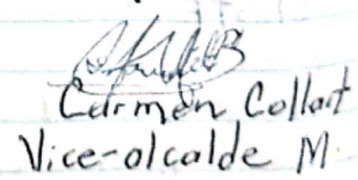 Carmen Collart
Vice-alcalde M.